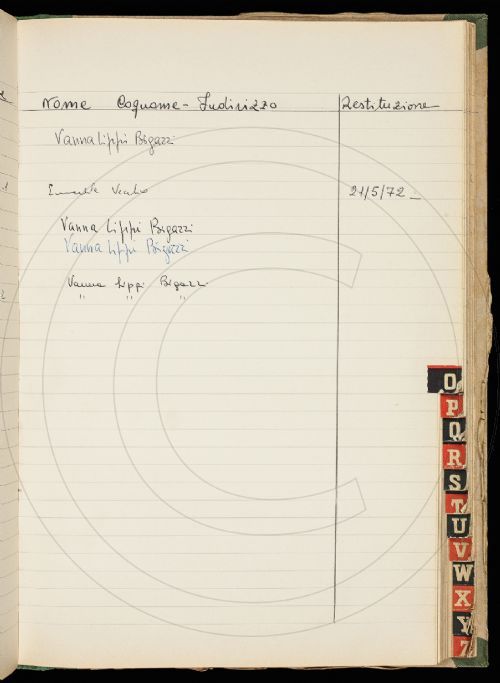 Nome Cognome - Indirizzo Restituzione
Vanna Lippi Bigazzi
21/5/72
Vanna Lippi Bigazzi
Vanna Lippi Bigazzi
Vanna Lippi Bigazzi
" " "
O
P
Q
R
S
T
U
V
W
X
Y
Z